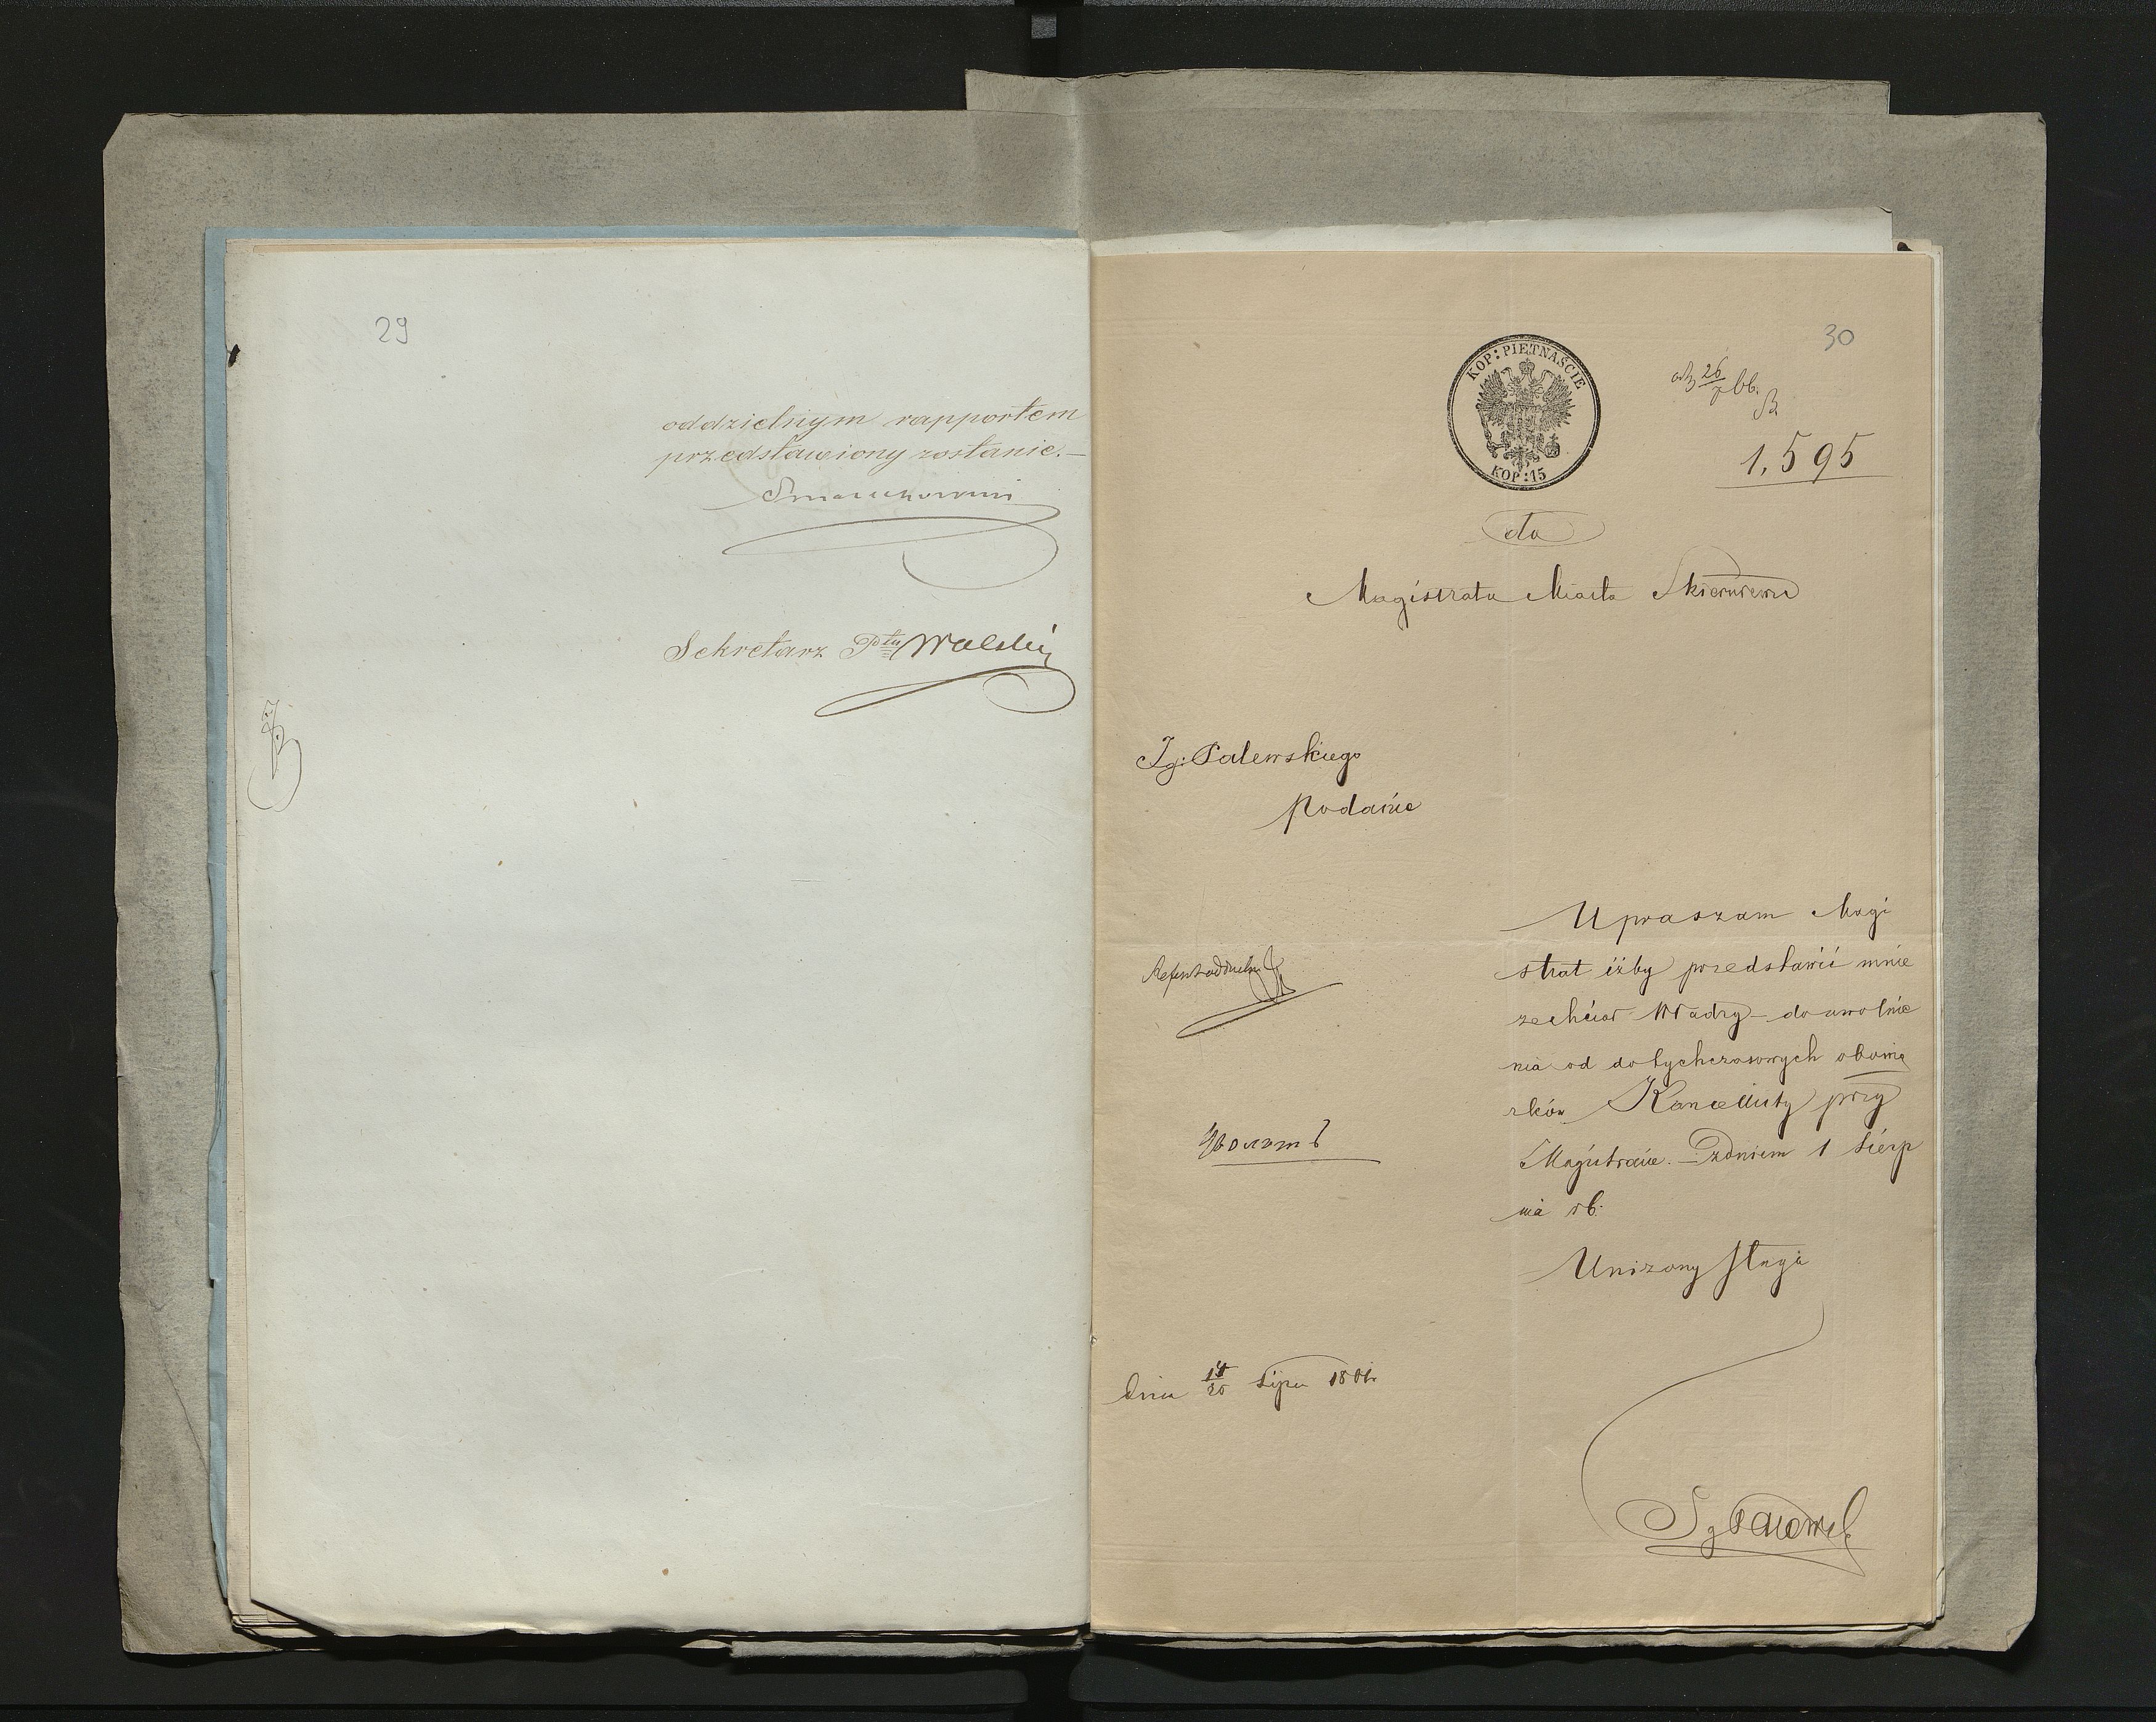 29
oddzielnym rapportem
przedstawiony zostanie.—
Sekretarz Ptu Walski
30
KOP: PIĘTNAŚCIE
KOP: 15
odb 26/7 66.
1,595
do
Magistratu Miasta Skierniewic
Ig: Palewskiego
Podanie
Upraszam Magi
strat iżby przedstawić mnie
zechciał Władzy – do uwolnie
nia od dotychczasowych obowią
zków Kancellisty przy
Magistracie. – z dniem 1 Sierp
nia rb.
Uniżony Sługa
dnia 25 Lipca 1866